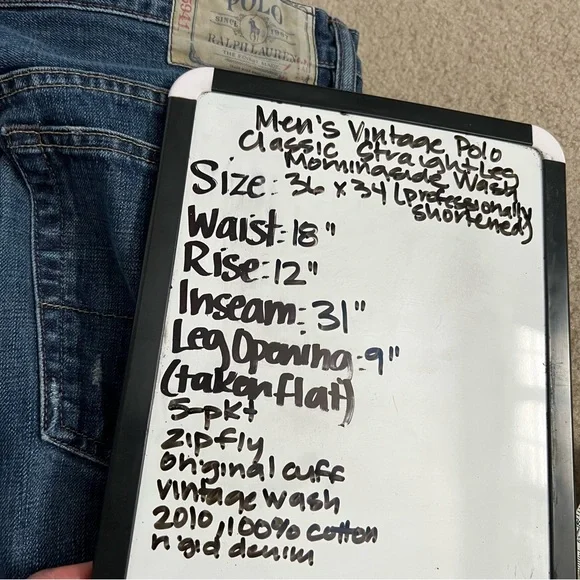 POLO
SINCE 1967
RALPH LAUREN
Men's Vintage Polo
Classic Straight Leg
Morningside Wash
Size: 36 x 34 (professionally
shortened)
Waist: 18"
Rise: 12"
Inseam: 31"
Leg Opening: 9"
(taken flat)
5-pkt
zip fly
original cuff
vintage wash
2010, 100% cotton
rigid denim